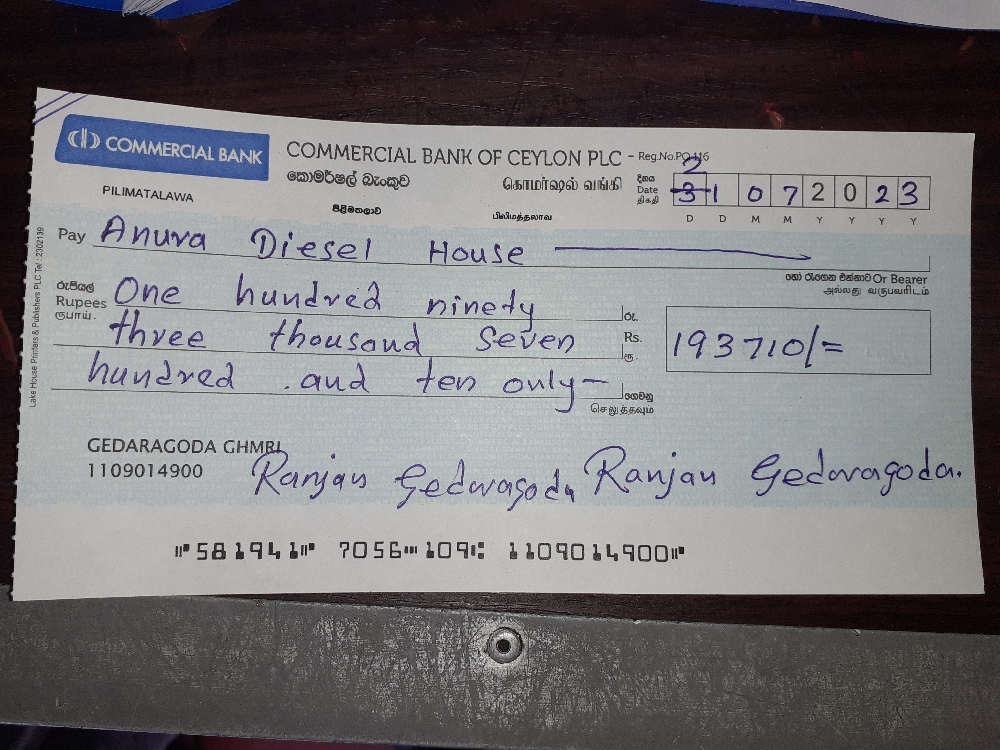 COMMERCIAL BANK
COMMERCIAL BANK OF CEYLON PLC - Reg.No.PQ 116
කොමර්ෂල් බැංකුව கொமர்ஷல் வங்கி
PILIMATALAWA පිළිමතලාව பிலிமத்தலாவ
දිනය
Date
திகதி
2
31 07 2023
D D M M Y Y Y Y
Pay Anura Diesel House
හෝ රැගෙන එන්නාට Or Bearer
அல்லது வருபவரிடம்
රුපියල්
Rupees
ரூபாய்.
One hundred ninety
three thousand Seven
hundred and ten only
රු.
Rs.
ரூ.
193710/=
ගෙවනු
செலுத்தவும்
Lake House Printers & Publishers PLC Tel : 2302139
GEDARAGODA GHMRI
1109014900
Ranjan Gedaragoda Ranjan Gedaragoda.
⑈581941⑈ 7056⑉109⑆ 1109014900⑈